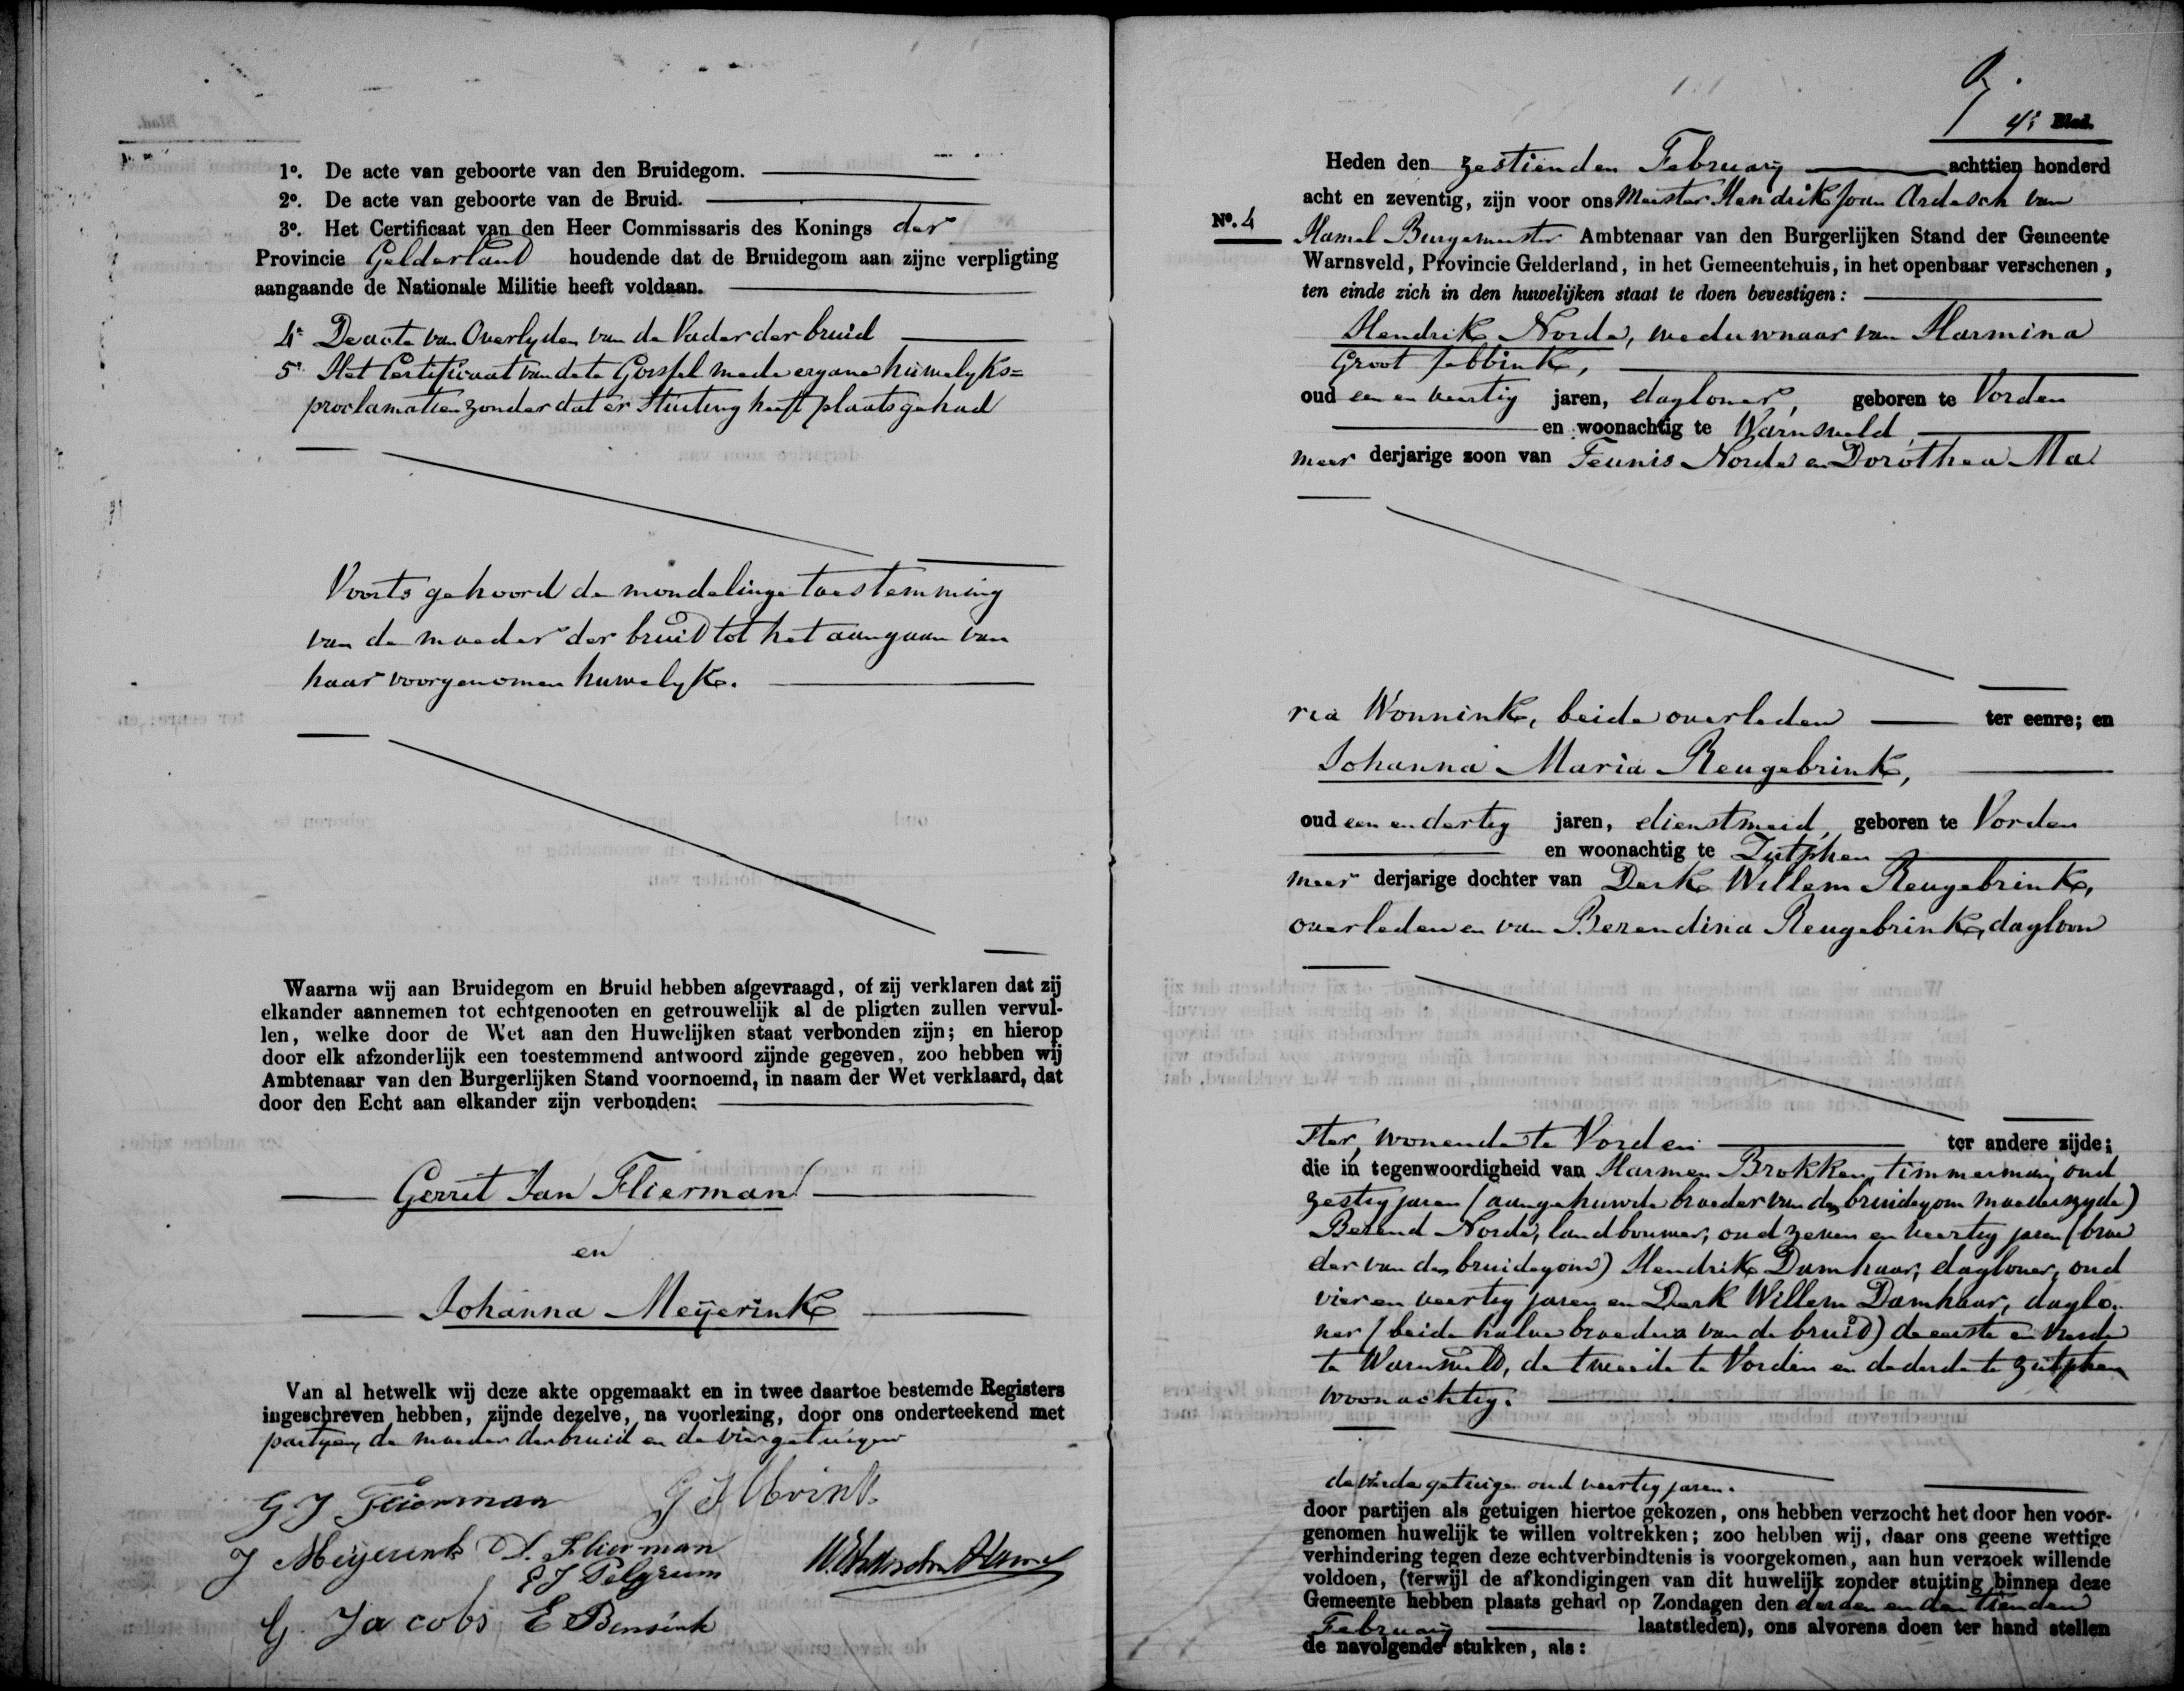 1o. De acte van geboorte van den Bruidegom.
2o. De acte van geboorte van de Bruid.
3o. Het Certificaat van den Heer Commissaris des Konings der
Provincie Gelderland houdende dat de Bruidegom aan zijne verpligting
aangaande de Nationale Militie heeft voldaan.
4o De acte van Overlyden van de Vader der bruid
5o Het Certificaat van de te Gorssel mede ergane huwelyks=
proclamatien zonder dat er Stuiting heeft plaats gehad
Voorts gehoord de mondelinge toestemming
van de moeder der bruid tot het aangaan van
haar voorgenomen huwelyk.
Waarna wij aan Bruidegom en Bruid hebben afgevraagd, of zij verklaren dat zij
elkander aannemen tot echtgenooten en getrouwelijk al de pligten zullen vervul-
len, welke door de Wet aan den Huwelijken staat verbonden zijn; en hierop
door elk afzonderlijk een toestemmend antwoord zijnde gegeven, zoo hebben wij
Ambtenaar van den Burgerlijken Stand voornoemd, in naam der Wet verklaard, dat
door den Echt aan elkander zijn verbonden:
Gerrit Jan Flierman
en
Johanna Meijerink
Van al hetwelk wij deze akte opgemaakt en in twee daartoe bestemde Registers
ingeschreven hebben, zijnde dezelve, na voorlezing, door ons onderteekend met
partyen, de moeder der bruid en de vier getuigen
G J Flierman
J Meijerink D. Flierman
E J Pelgrum
G. Jacobs E Bensink
4e Blad.
Heden den zestienden February achttien honderd
acht en zeventig, zijn voor ons Meester Hendrik Joan Ardesch van
No. 4
Hamel Burgemeester Ambtenaar van den Burgerlijken Stand der Gemeente
Warnsveld, Provincie Gelderland, in het Gemeentehuis, in het openbaar verschenen,
ten einde zich in den huwelijken staat te doen bevestigen:
Hendrik Norde, weduwnaar van Harmina
Groot Jebbink,
oud een en veertig jaren, dagloner, geboren te Vorden
en woonachtig te Warnsveld,
meer derjarige zoon van Teunis Norde en Dorothea Ma
ria Wonnink, beide overleden ter eenre; en
Johanna Maria Reugebrink,
oud een en dertig jaren, dienstmeid, geboren te Vorden
en woonachtig te Zutphen
meer derjarige dochter van Derk Willem Reugebrink,
overleden en van Berendina Reugebrink, dagloon
ster, wonende te Vorden ter andere zijde;
die in tegenwoordigheid van Harmen Brokken, timmerman, oud
zestig jaren (aangehuwde broeder van den bruidegom moederszyde)
Berend Norde, landbouwer, oud zeven en veertig jaren (broe
der van den bruidegom) Hendrik Damhaar, dagloner, oud
vier en veertig jaren en Derk Willem Damhaar, daglo-
ner (beide halve broeders van de bruid) de eerste en vierde
te Warnsveld, de tweede te Vorden en de derde te Zutphen
woonachtig.
de vierde getuige oud veertig jaren.
door partijen als getuigen hiertoe gekozen, ons hebben verzocht het door hen voor-
genomen huwelijk te willen voltrekken; zoo hebben wij, daar ons geene wettige
verhindering tegen deze echtverbindtenis is voorgekomen, aan hun verzoek willende
voldoen, (terwijl de afkondigingen van dit huwelijk zonder stuiting binnen deze
Gemeente hebben plaats gehad op Zondagen den derden en den tienden
February laatstleden), ons alvorens doen ter hand stellen
de navolgende stukken, als: